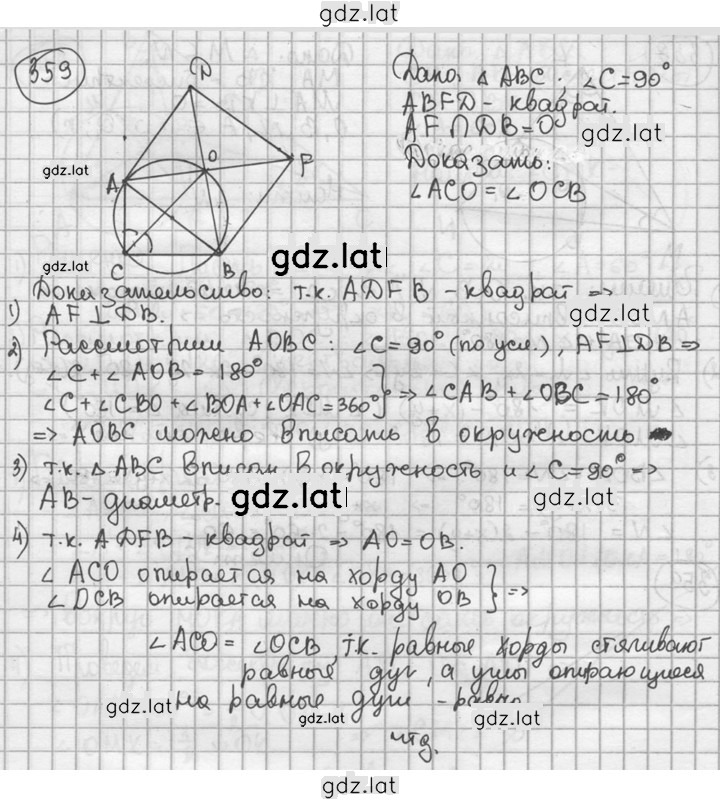 gdz.lat
359
D
O
F
A
C
B
gdz.lat
gdz.lat
Дано: Δ ABC; ∠C=90°
ABFD - квадрат.
AF∩DB=O
gdz.lat
Доказать:
∠ACO = ∠OCB
gdz.lat
Доказательство: т.к. ADFB - квадрат =>
1) AF⊥DB.
gdz.lat
2) Рассмотрим AOBC: ∠C=90° (по усл.), AF⊥DB =>
∠C+∠AOB = 180°
∠C+∠CBO+∠BOA+∠OAC=360° } => ∠CAB+∠OBC=180°
=> AOBC можно вписать в окружность
3) т.к. Δ ABC вписан в окружность и ∠C=90° =>
AB - диаметр.
gdz.lat
gdz.lat
4) т.к. ADFB - квадрат => AO=OB.
∠ ACO опирается на хорду AO
∠ OCB опирается на хорду OB } =>
∠ACO = ∠OCB, т.к. равные хорды стягивают
равные дуг, а углы опирающиеся
на равные дуги - равны
gdz.lat
gdz.lat
gdz.lat
чтд.
gdz.lat